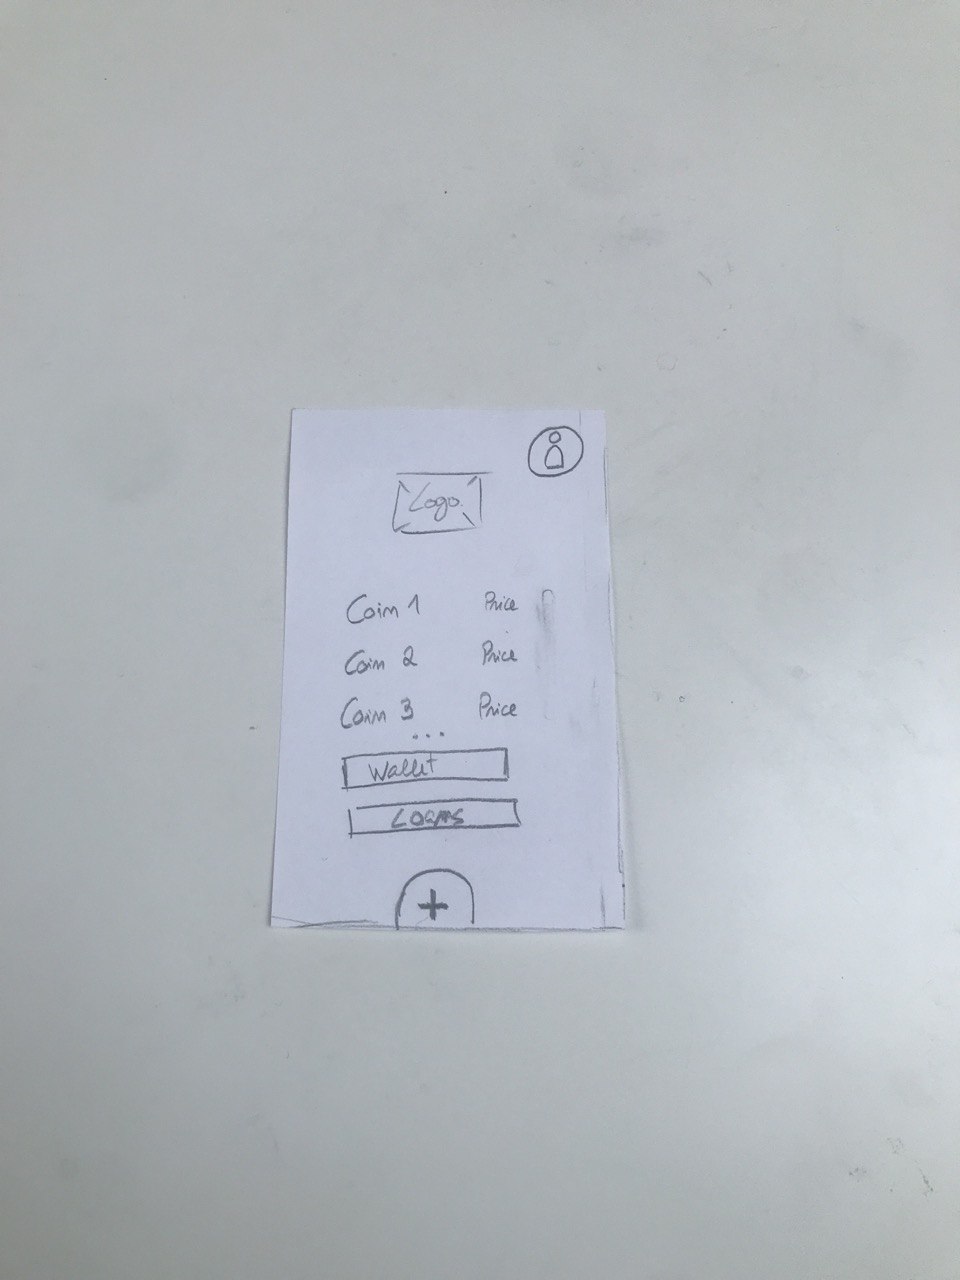 Logo
Coin 1 Price
Coin 2 Price
Coin 3 Price
...
Wallet
Loans
+